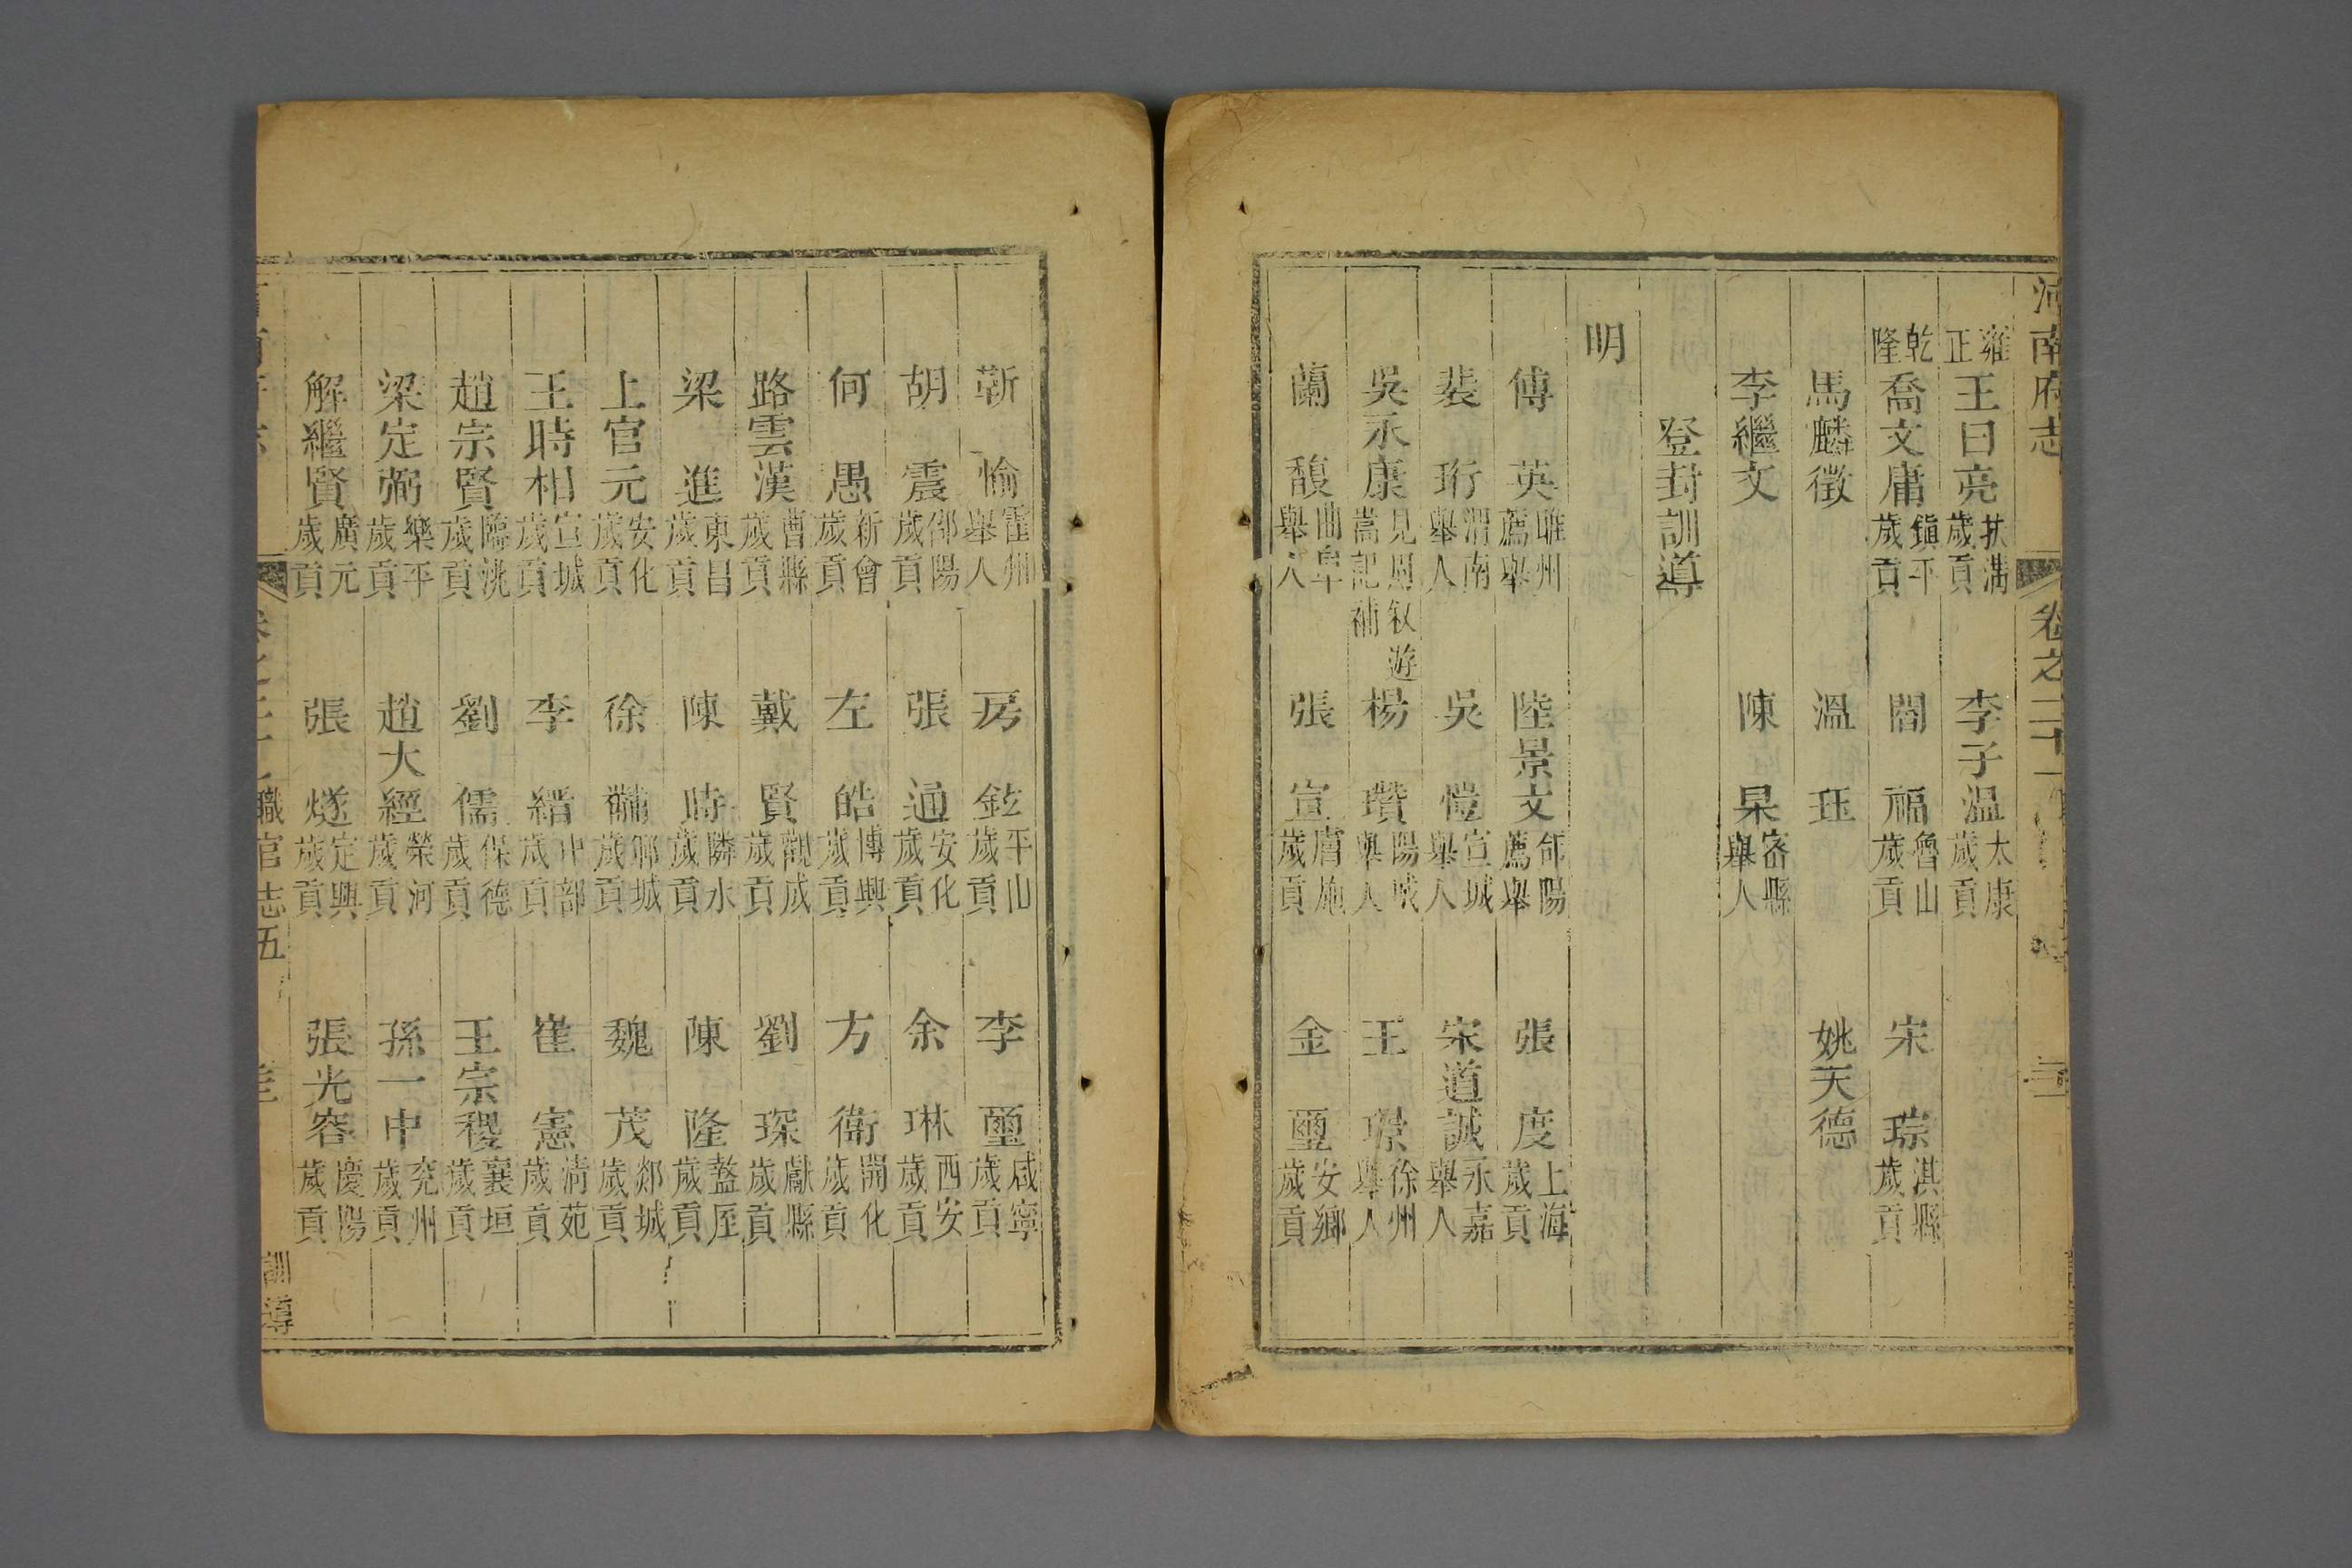 河南府志 卷之二十
雍正 王日亮 扶溝歲貢 李子溫 太康歲貢
乾隆 喬文庸 鎮平歲貢 閻福 魯山歲貢 宋琮 淇縣歲貢
馬麟徵 溫珏 姚天德
李繼文 陳杲 密縣舉人
登封訓導
明
傅英 睢州薦舉 陸景文 郃陽薦舉 張度 上海歲貢
裴珩 渭南舉人 吳愷 宣城舉人 宋道誠 永嘉舉人
吳永康 見周敘遊嵩記補 楊瓚 陽城舉人 王璟 徐州舉人
蘭馥 曲阜舉人 張宣 膚施歲貢 金璽 安鄉歲貢
靳愉 霍州舉人 房鉉 平山歲貢 李璽 咸寧歲貢
胡震 郃陽歲貢 張通 安化歲貢 余琳 西安歲貢
何愚 新會歲貢 左皓 博興歲貢 方衛 開化歲貢
路雲漢 曹縣歲貢 戴賢 觀成歲貢 劉琛 獻縣歲貢
梁進 東昌歲貢 陳時 隣水歲貢 陳隆 盩厔歲貢
上官元 安化歲貢 徐黼 鄆城歲貢 魏茂 郯城歲貢
王時相 宣城歲貢 李縉 中部歲貢 崔憲 清苑歲貢
趙宗賢 臨洮歲貢 劉儒 保德歲貢 王宗稷 襄垣歲貢
梁定弼 樂平歲貢 趙大經 榮河歲貢 孫一中 兖州歲貢
解繼賢 廣元歲貢 張燧 定興歲貢 張光容 慶陽歲貢
職官志五 訓導